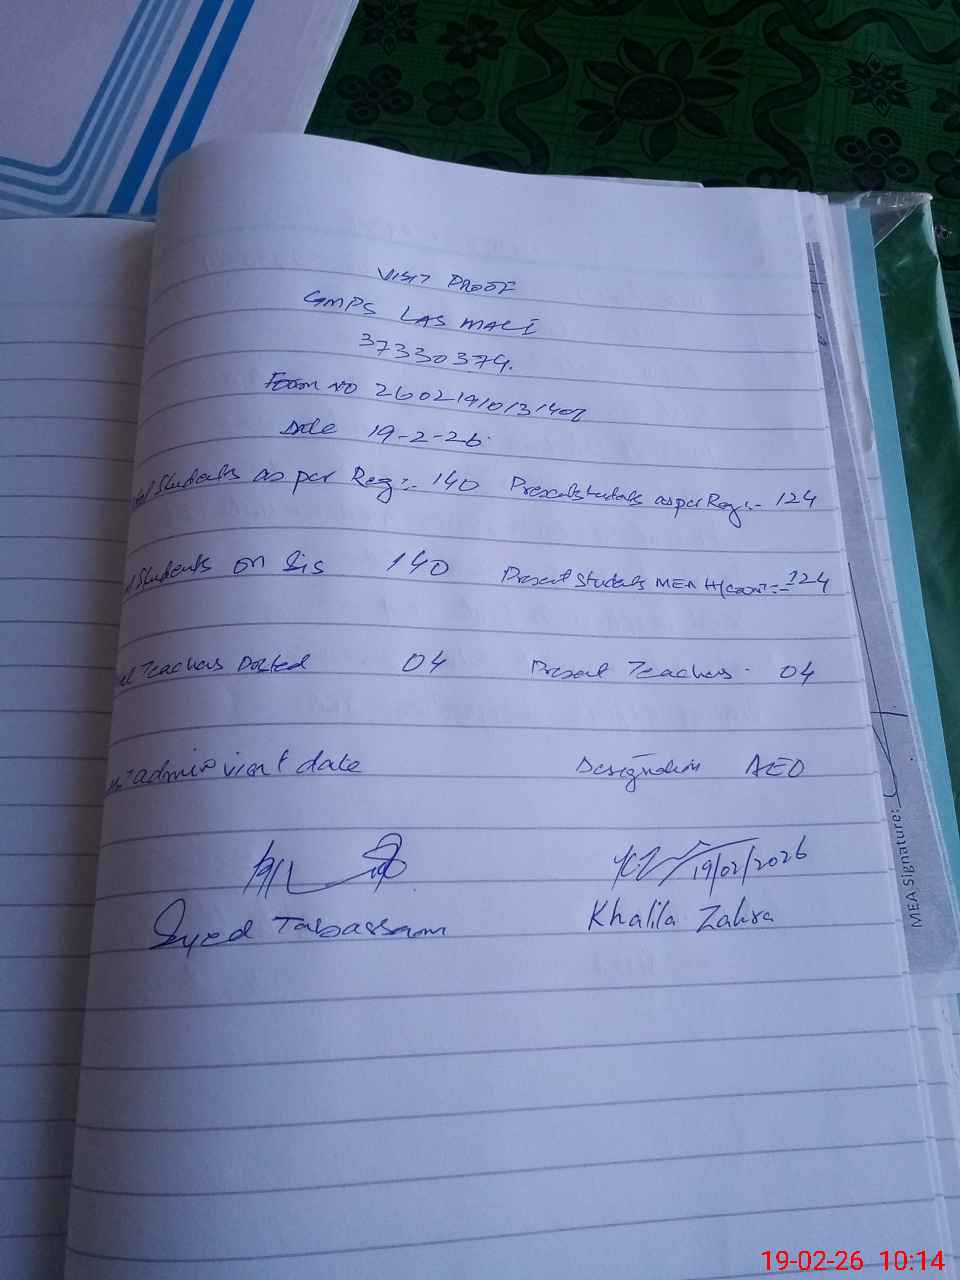 VISIT PROOF
GMPS LAS MALI
37330374.
Form NO
Date 19-2-26.
Students as per Reg:- 140 Present students as per Reg:- 124
Students on Sis 140 Present Students MEA H/Count:- 124
Teachers Posted 04 Present Teachers. 04
admin visit date Designation AEO
19/02/2026
Syed Tabassam Khalila Zahra
MEA Signature:
19-02-26 10:14